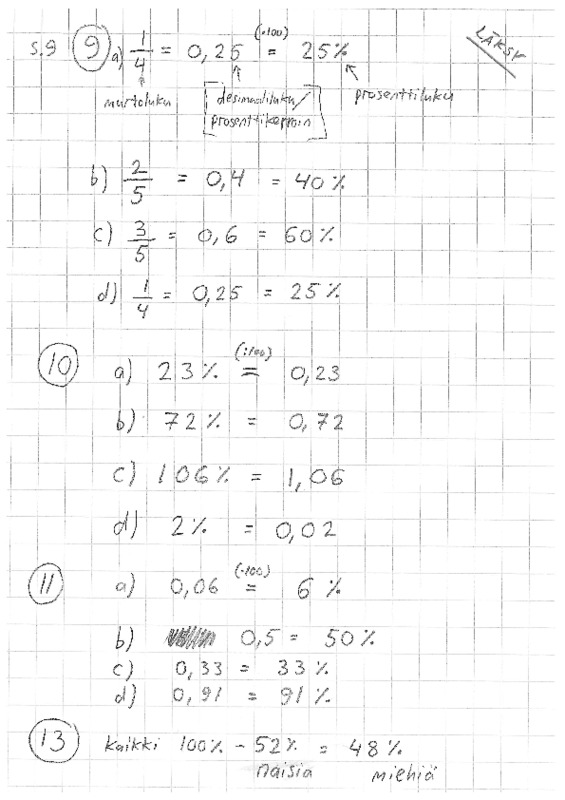 LÄKSY
s.9 9 a) 1/4 = 0,25 (·100) = 25%
murtoluku [desimaaliluku/ prosenttiluku
prosenttikerroin]
b) 2/5 = 0,4 = 40%
c) 3/5 = 0,6 = 60%
d) 1/4 = 0,25 = 25%
10 a) 23% (:100) = 0,23
b) 72% = 0,72
c) 106% = 1,06
d) 2% = 0,02
11 a) 0,06 (·100) = 6%
b) 0,5 = 50%
c) 0,33 = 33%
d) 0,91 = 91%
13 Kaikki 100% - 52% = 48%
naisia miehiä